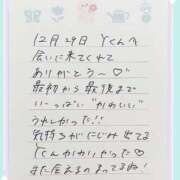 12月29日 Yくんへ
会いに来てくれて
ありがとう〜♡
最初から最後まで
いーっぱい"かわいい"
うれしかった!!
気持ちがにじみ出てる
Yくんかわいかった♡
また会えるのまってるね!